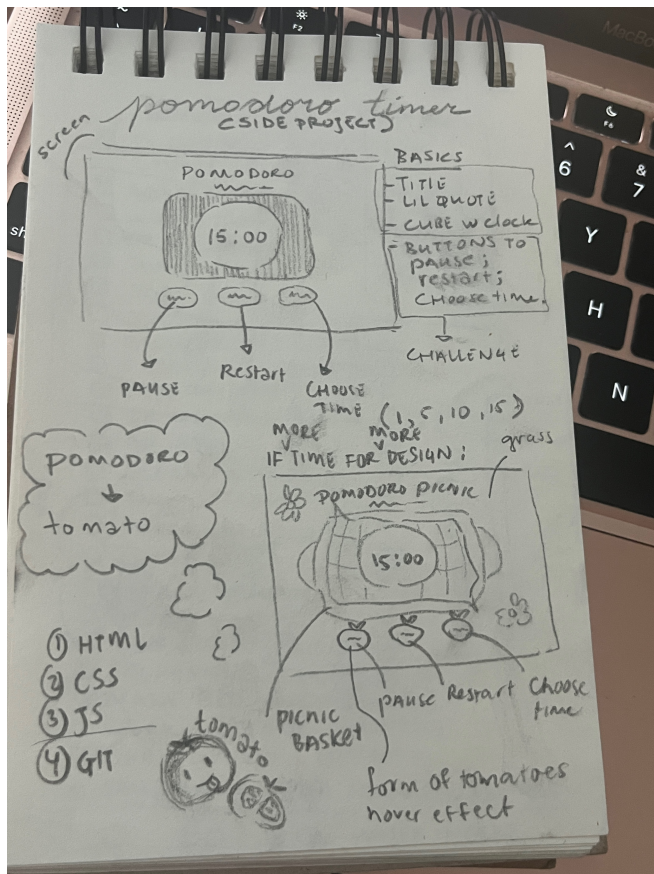 MacBo
F2
F6
^
6
&
7
Y
H
N
sh
pomodoro timer
(SIDE PROJECT)
screen
POMODORO
15:00
BASICS
- TITLE
- LIL QUOTE
- CUBE W clock
- BUTTONS TO
pause;
restart;
CHOOSE time.
CHALLENGE
PAUSE
Restart
CHOOSE
TIME (1, 5, 10, 15)
MORE MORE
IF TIME FOR DESIGN:
grass
POMODORO
tomato
POMODORO PICNIC
15:00
① HTML
② CSS
③ JS
④ GIT
tomato
PICNIC
BASKET
PAUSE
Restart
Choose
time
form of tomatoes
hover effect